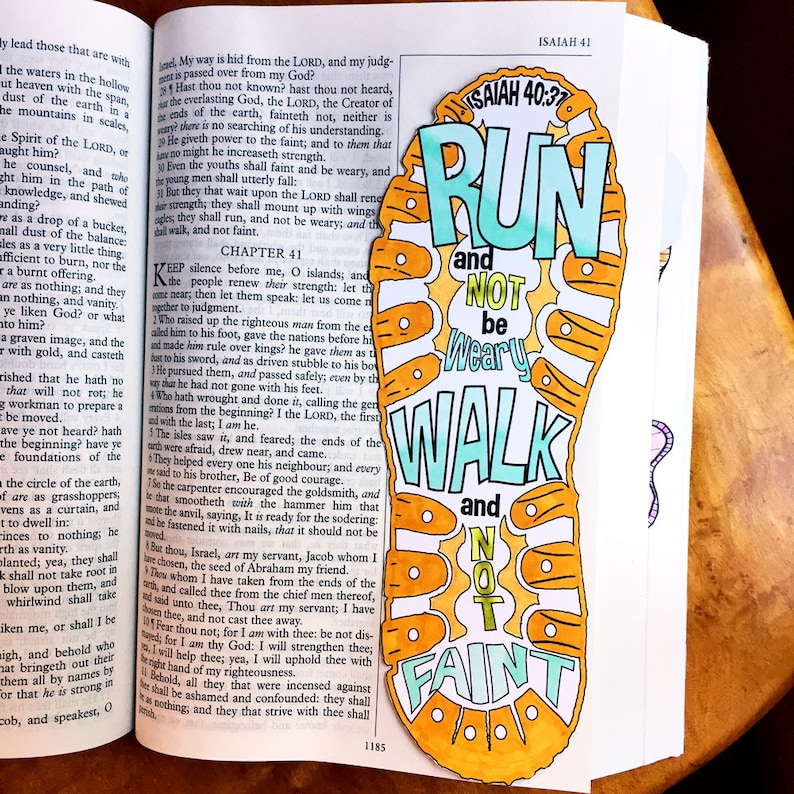 ly lead those that are with
d the waters in the hollow
ut heaven with the span,
dust of the earth in a
he mountains in scales,
e Spirit of the LORD, or
aught him?
he counsel, and who
ght him in the path of
t knowledge, and shewed
anding?
re as a drop of a bucket,
mall dust of the balance:
sles as a very little thing.
ufficient to burn, nor the
r a burnt offering.
are as nothing; and they
an nothing, and vanity.
ye liken God? or what
nto him?
a graven image, and the
r with gold, and casteth
rished that he hath no
that will not rot; he
ng workman to prepare a
t be moved.
ve ye not heard? hath
the beginning? have ye
e foundations of the
n the circle of the earth,
of are as grasshoppers;
avens as a curtain, and
t to dwell in:
rinces to nothing; he
rth as vanity.
planted; yea, they shall
k shall not take root in
blow upon them, and
whirlwind shall take
iken me, or shall I be
high, and behold who
at bringeth out their
them all by names by
for that he is strong in
cob, and speakest, O
ISAIAH 41
Israel, My way is hid from the LORD, and my judg-
ment is passed over from my God?
28 ¶ Hast thou not known? hast thou not heard,
that the everlasting God, the LORD, the Creator of
the ends of the earth, fainteth not, neither is
weary? there is no searching of his understanding.
29 He giveth power to the faint; and to them that
have no might he increaseth strength.
30 Even the youths shall faint and be weary, and
the young men shall utterly fall:
31 But they that wait upon the LORD shall rene
their strength; they shall mount up with wings
eagles; they shall run, and not be weary; and th
shall walk, and not faint.
CHAPTER 41
KEEP silence before me, O islands; and
the people renew their strength: let th
come near; then let them speak: let us come n
together to judgment.
2 Who raised up the righteous man from the ea
called him to his foot, gave the nations before hi
and made him rule over kings? he gave them as th
dust to his sword, and as driven stubble to his bow
3 He pursued them, and passed safely; even by th
way that he had not gone with his feet.
4 Who hath wrought and done it, calling the gen
erations from the beginning? I the LORD, the first
and with the last; I am he.
5 The isles saw it, and feared; the ends of the
earth were afraid, drew near, and came.
6 They helped every one his neighbour; and every
one said to his brother, Be of good courage.
7 So the carpenter encouraged the goldsmith, and
he that smootheth with the hammer him that
smote the anvil, saying, It is ready for the sodering:
and he fastened it with nails, that it should not be
moved.
8 But thou, Israel, art my servant, Jacob whom I
have chosen, the seed of Abraham my friend.
9 Thou whom I have taken from the ends of the
earth, and called thee from the chief men thereof,
and said unto thee, Thou art my servant; I have
chosen thee, and not cast thee away.
10 ¶ Fear thou not; for I am with thee: be not dis-
mayed; for I am thy God: I will strengthen thee;
yea, I will help thee; yea, I will uphold thee with
the right hand of my righteousness.
11 Behold, all they that were incensed against
thee shall be ashamed and confounded: they shall
be as nothing; and they that strive with thee shall
perish.
1185
ISAIAH 40:31
RUN
and
NOT
be
Weary
WALK
and
NOT
FAINT